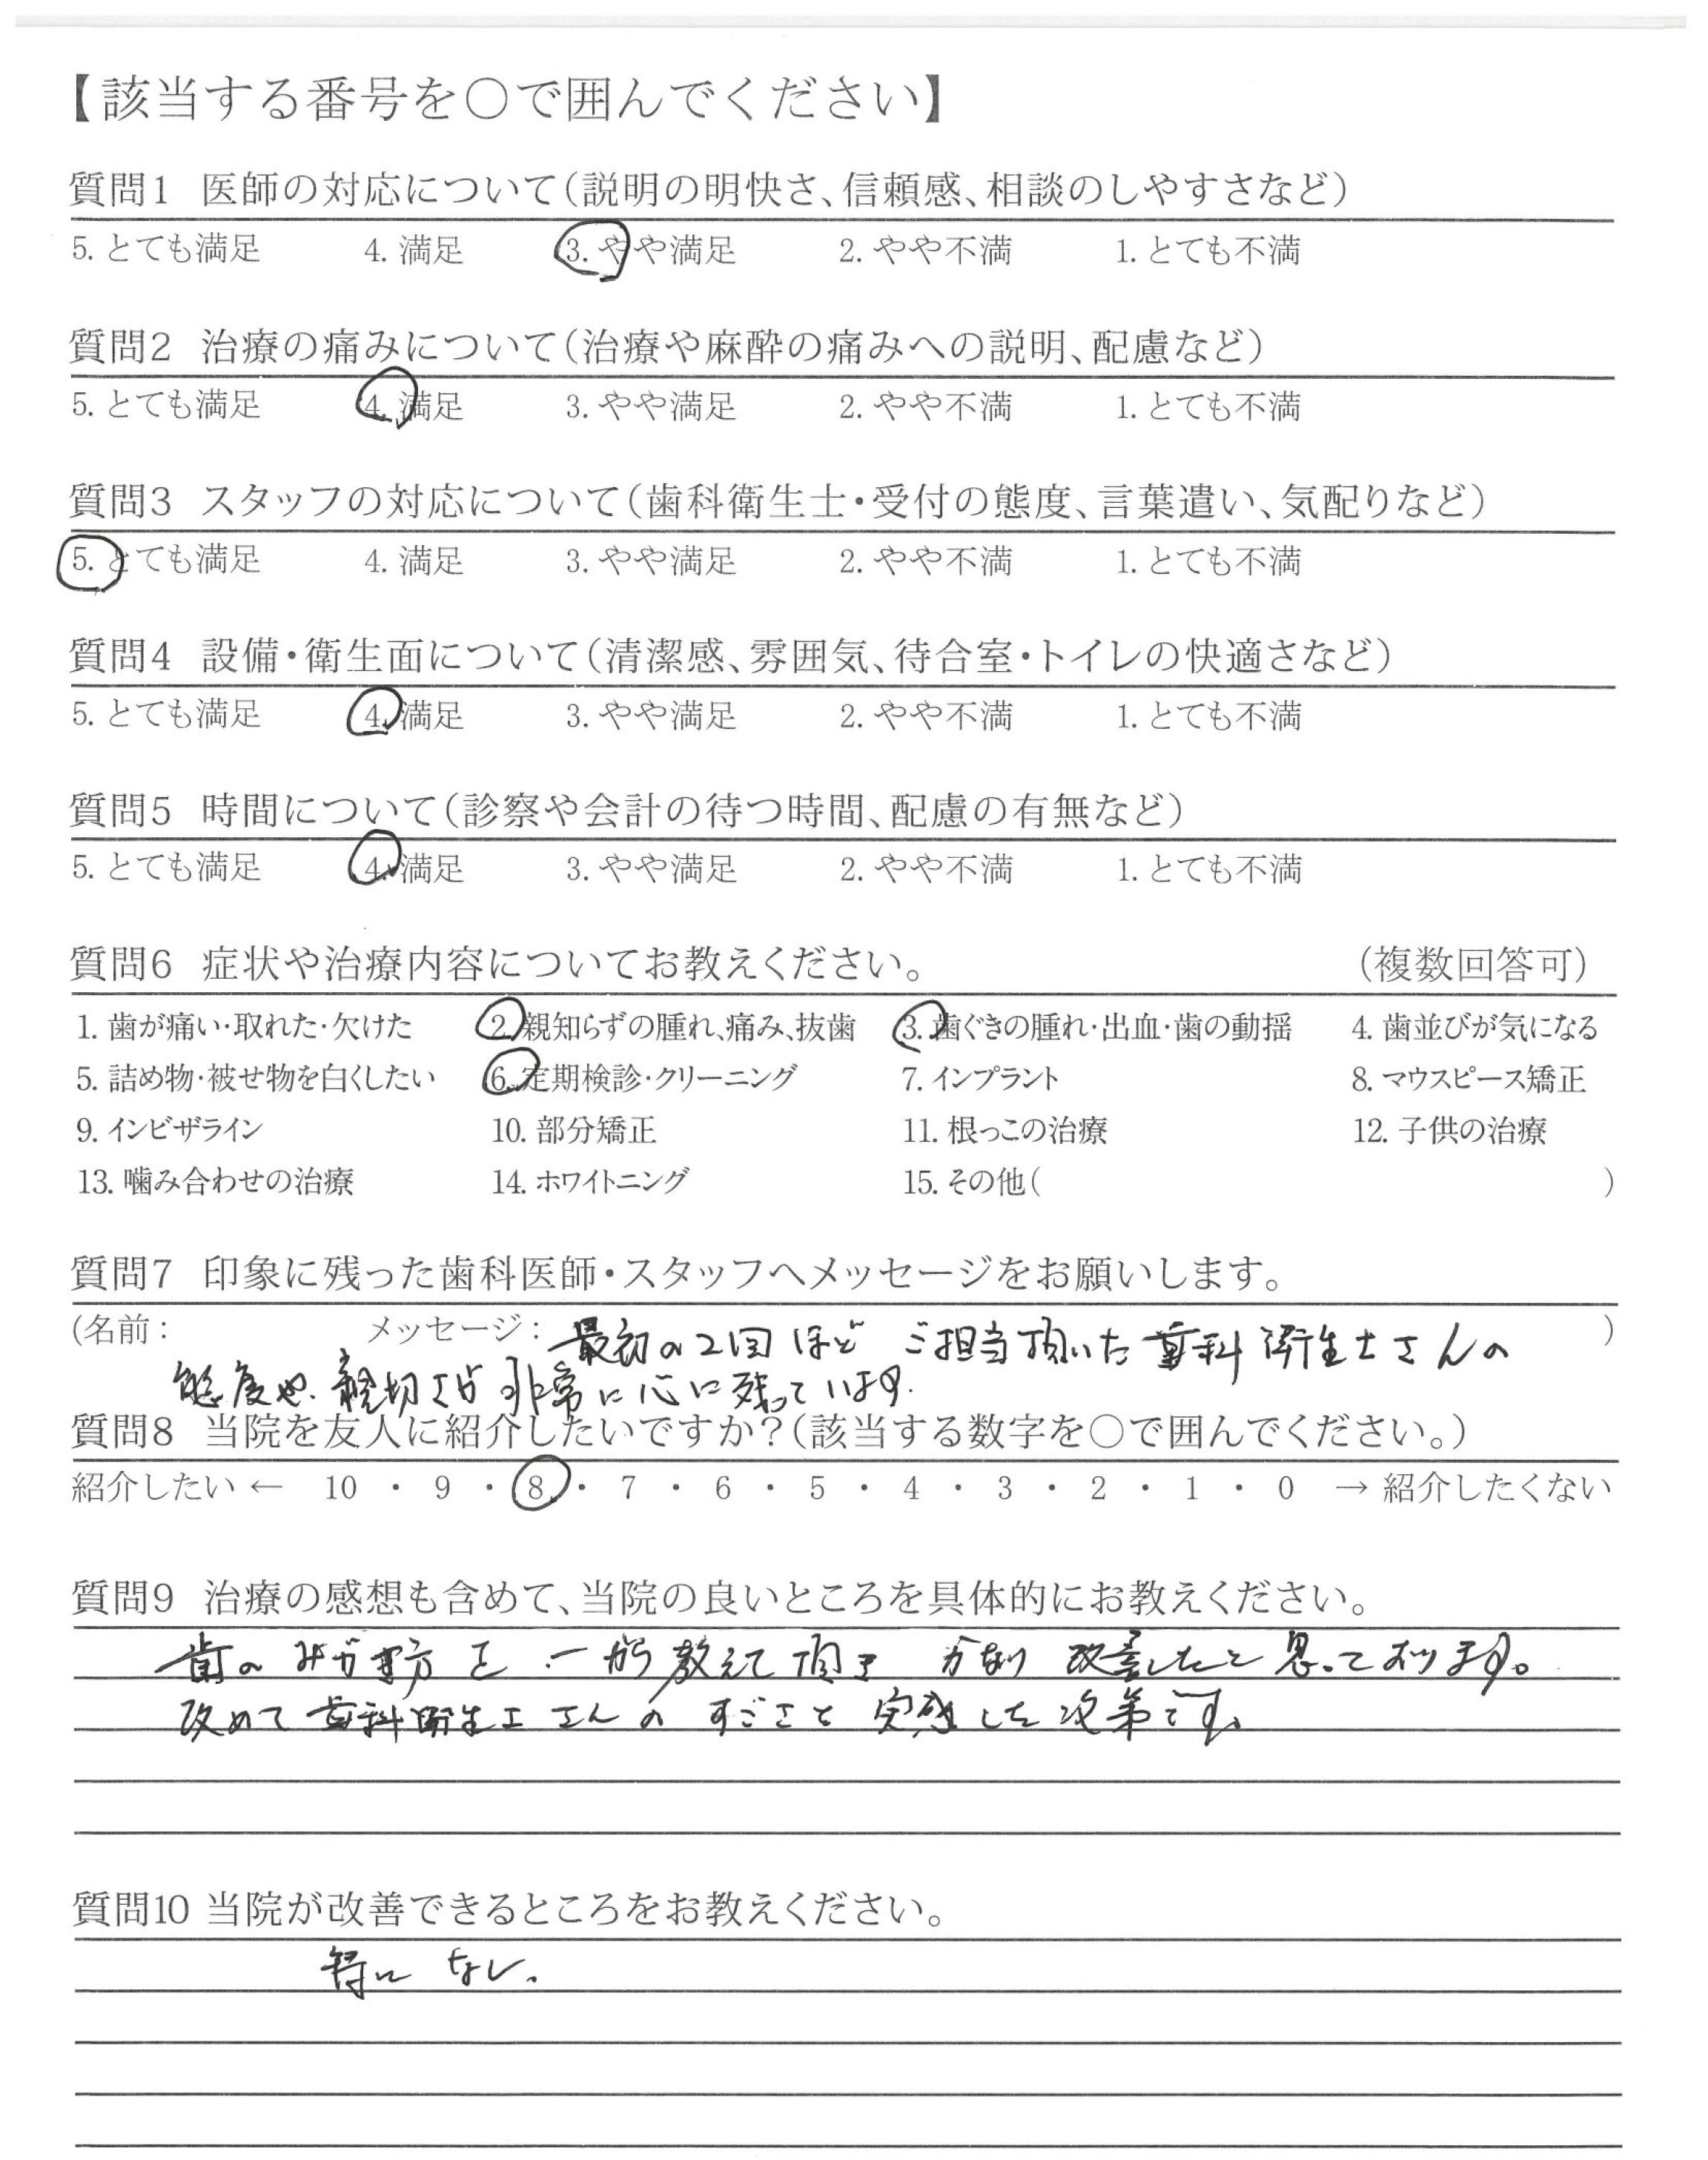 【該当する番号を○で囲んでください】
質問1 医師の対応について(説明の明快さ、信頼感、相談のしやすさなど)
5. とても満足 4. 満足 3. やや満足 2. やや不満 1. とても不満
質問2 治療の痛みについて(治療や麻酔の痛みへの説明、配慮など)
5. とても満足 4. 満足 3. やや満足 2. やや不満 1. とても不満
質問3 スタッフの対応について(歯科衛生士・受付の態度、言葉遣い、気配りなど)
5. とても満足 4. 満足 3. やや満足 2. やや不満 1. とても不満
質問4 設備・衛生面について(清潔感、雰囲気、待合室・トイレの快適さなど)
5. とても満足 4. 満足 3. やや満足 2. やや不満 1. とても不満
質問5 時間について(診察や会計の待つ時間、配慮の有無など)
5. とても満足 4. 満足 3. やや満足 2. やや不満 1. とても不満
質問6 症状や治療内容についてお教えください。 (複数回答可)
1. 歯が痛い・取れた・欠けた 2. 親知らずの腫れ、痛み、抜歯 3. 歯ぐきの腫れ・出血・歯の動揺 4. 歯並びが気になる
5. 詰め物・被せ物を白くしたい 6. 定期検診・クリーニング 7. インプラント 8. マウスピース矯正
9. インビザライン 10. 部分矯正 11. 根っこの治療 12. 子供の治療
13. 噛み合わせの治療 14. ホワイトニング 15. その他( )
質問7 印象に残った歯科医師・スタッフへメッセージをお願いします。
(名前: メッセージ: 最初の2回ほど ご担当頂いた歯科衛生士さんの )
態度や、親切さが非常に心に残っています。
質問8 当院を友人に紹介したいですか?(該当する数字を○で囲んでください。)
紹介したい ← 10 ・ 9 ・ 8 ・ 7 ・ 6 ・ 5 ・ 4 ・ 3 ・ 2 ・ 1 ・ 0 → 紹介したくない
質問9 治療の感想も含めて、当院の良いところを具体的にお教えください。
歯のみがき方を一から教えて頂き かなり改善したと思っております。
改めて歯科衛生士さんのすごさを実感した次第です。
質問10 当院が改善できるところをお教えください。
特になし。